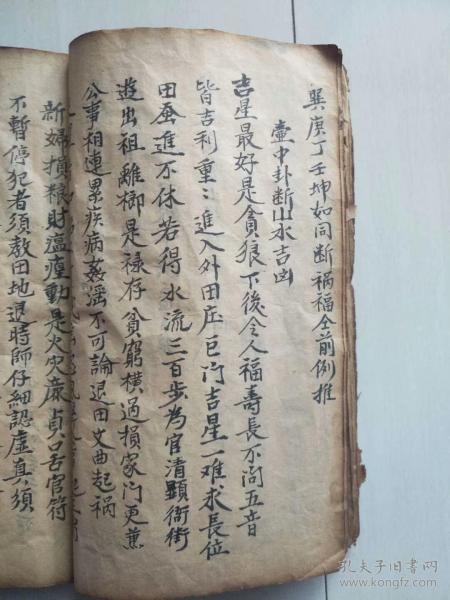 巽庚丁壬坤如同断祸福仝前例推
壷中卦断山水吉凶
吉星最好是貪狼下後令人福壽長不问五音
皆吉利重〻進入外田庄巨门吉星一难求長位
田蚕進不休若得水流三百步为官清顯衙街
遊出祖離鄉是禄存貧窮横過損家门更蕙
公事相連累疾病姦淫不可論退田文曲起祸
新婦損粮財瘟瘟動是火灾廉貞口舌官符
不暫停犯者须教田地退時師仔細認虚真须
孔夫子旧书网
www.kongfz.com